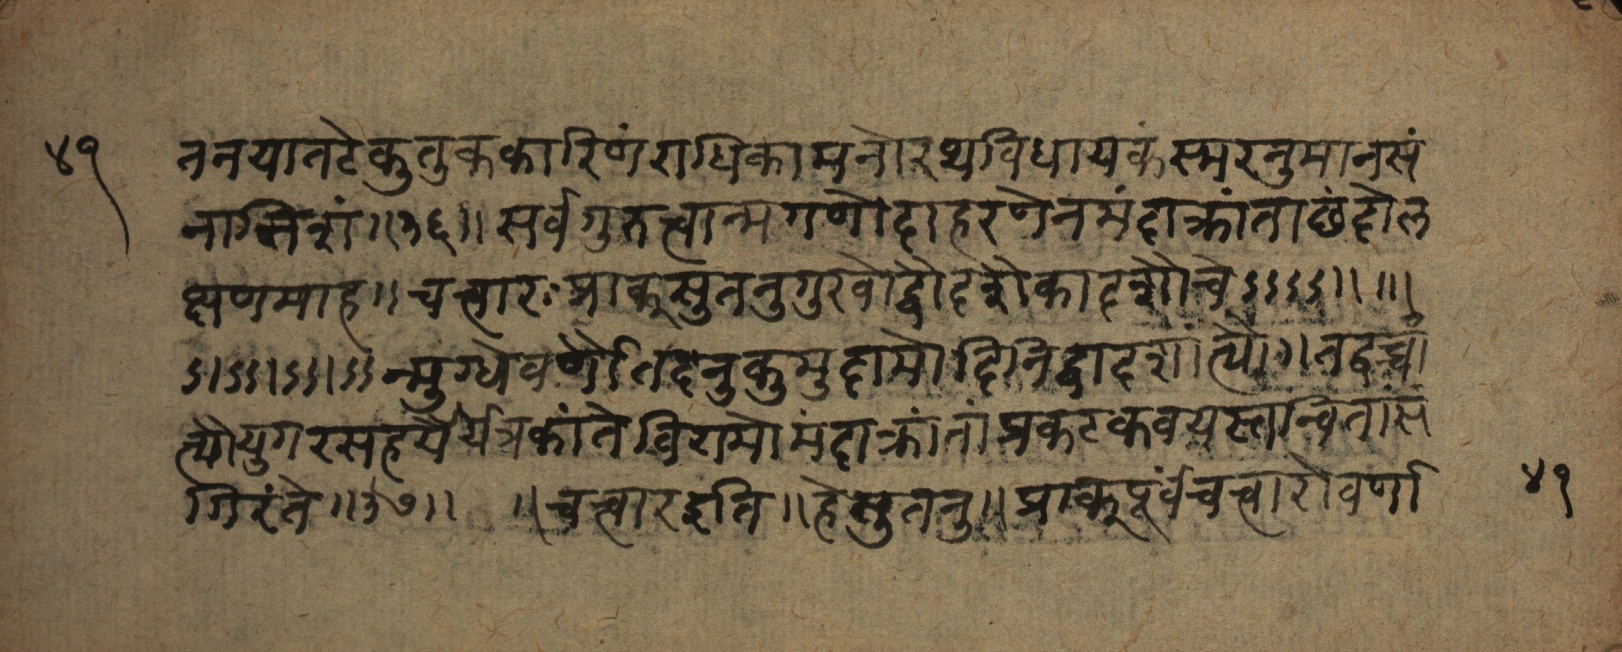 ४१ ननयातटेकुतुककारिणंराधिकामनोरथविधायकंस्मरनुमानसं
नानिशं॥३६॥ सर्वगुरुत्वान्मगणोदाहरणेनमंदाक्रांताछंदोल
क्षणमाह॥ चत्वारः प्राक्सुतनुगुरवोद्वौदशैकादशौचे ऽऽऽऽ।।।।।
ऽ।ऽऽ।ऽऽ।ऽऽ न्मुग्धेवर्णौतदनुकुमुदामोदिनिद्वादशांत्यौ॥तद्वच्चां
त्यौयुगरसहयैर्यत्रकांतेविरामोमंदाक्रांतांप्रकटकवयस्तान्वितांसं
गिरंते॥३७॥ ॥चत्वारइति॥हेसुतनु॥प्राक्पूर्वंचत्वारोवर्णा ४१